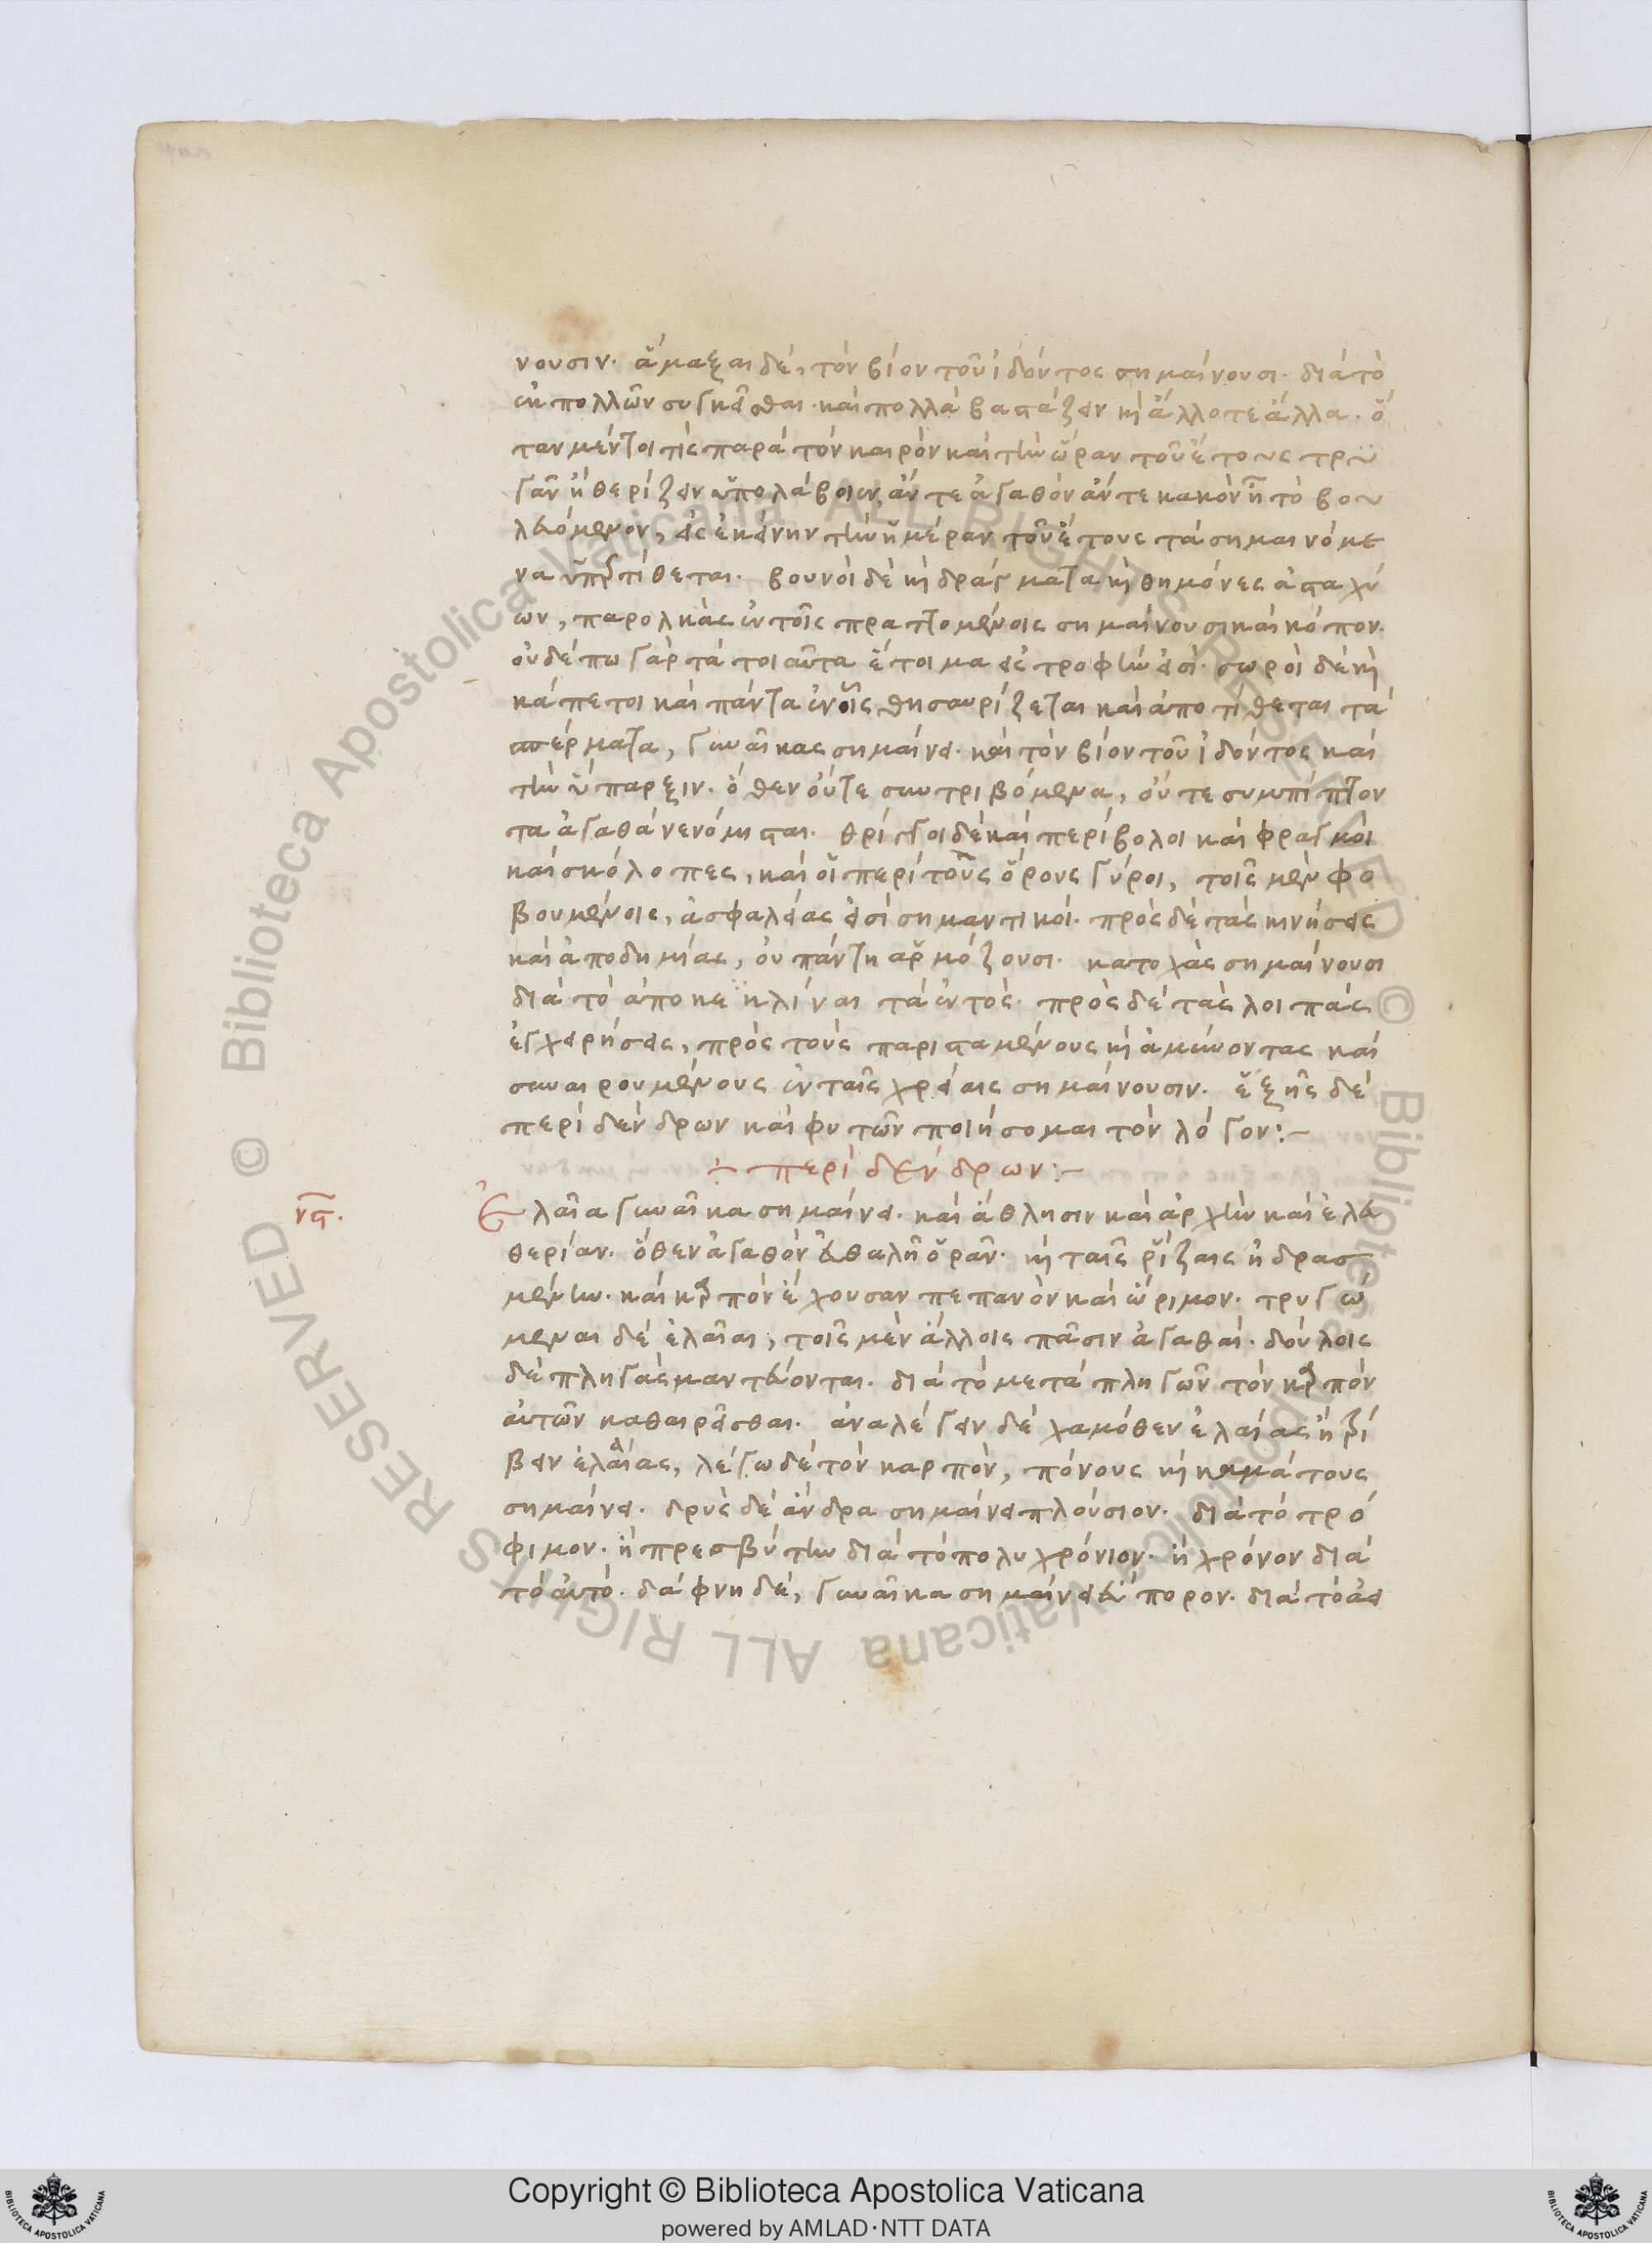 νουσιν. ἅμαξαι δὲ, τὸν βίον τοῦ ἰδόντος σημαίνουσι. διὰ τὸ
ἐκ πολλῶν συγκεῖσθαι. καὶ πολλὰ βαστάζειν καὶ ἄλλοτε ἄλλα. ὅ
ταν μέντοι τὶς παρὰ τὸν καιρὸν καὶ τὴν ὥραν τοῦ ἔτους τρυ
γᾶν ἢ θερίζειν ὑπολάβοι ἄν τε ἀγαθὸν ἄν τε κακὸν ἦ τὸ βου
λευόμενον, εἰς ἐκείνην τὴν ἡμέραν τοῦ ἔτους τὰ σημαινόμε
να ὑπερτίθεται. βουνοὶ δὲ καὶ δράγματα καὶ θημόνες ἀσταχύ
ων, παρολκὰς ἐν τοῖς πραττομένοις σημαίνουσι καὶ κόπον.
οὐδέπω γὰρ τὰ τοιαῦτα ἕτοιμα εἰς τροφὴν εἰσὶ. σωροὶ δὲ καὶ
κάπετοι καὶ πάντα ἐν οἷς θησαυρίζεται καὶ ἀποτίθεται τὰ
σπέρματα, γυναῖκας σημαίνει. καὶ τὸν βίον τοῦ ἰδόντος καὶ
τὴν ὕπαρξιν. ὅθεν οὔτε συντριβόμενα, οὔτε συμπίπτον
τα ἀγαθὰ νενόμισται. θριγγοὶ δὲ καὶ περίβολοι καὶ φραγμοὶ
καὶ σκόλοπες, καὶ οἱ περὶ τοὺς ὅρους γύροι, τοῖς μὲν φο
βουμένοις, ἀσφαλείας εἰσὶ σημαντικοὶ. πρὸς δὲ τὰς κινήσεις
καὶ ἀποδημίας, οὐ πάντη ἁρμόζουσι. κατοχὰς σημαίνουσι
διὰ τὸ ἀποκεκλῖναι τὰ ἐντὸς. πρὸς δὲ τὰς λοιπὰς
ἐγχειρήσεις, πρὸς τοὺς παρισταμένους καὶ ἀμύνοντας καὶ
συναιρουμένους ἐν ταῖς χρείαις σημαίνουσιν. ἑξῆς δὲ
περὶ δένδρων καὶ φυτῶν ποιήσομαι τὸν λόγον:-
÷ περὶ δένδρων:-
νϛ. Ἐλαῖα γυναῖκα σημαίνει. καὶ ἄθλησιν καὶ ἀρχὴν καὶ ἐλευ
θερίαν. ὅθεν ἀγαθὸν εὐθαλῆ ὁρᾶν. καὶ ταῖς ῥίζαις ἡδρασ
μένην. καὶ καρπὸν ἔχουσαν πεπανὸν καὶ ὥριμον. τρυγώ
μεναι δὲ ἐλαῖαι, τοῖς μὲν ἄλλοις πᾶσιν ἀγαθαὶ. δούλοις
δὲ πληγὰς μαντεύονται. διὰ τὸ μετὰ πληγῶν τὸν καρπὸν
αὐτῶν καθαιρεῖσθαι. ἀναλέγειν δὲ χαμόθεν ἐλαίας ἢ τρί
βειν ἐλαίας, λέγω δὲ τὸν καρπὸν, πόνους καὶ καμάτους
σημαίνει. δρῦς δὲ ἄνδρα σημαίνει πλούσιον. διὰ τὸ τρό
φιμον. ἢ πρεσβύτην διὰ τὸ πολυχρόνιον. ἢ χρόνον διὰ
τὸ αὐτὸ. δάφνη δὲ, γυναῖκα σημαίνει εὔπορον. διὰ τὸ ἀει
Copyright © Biblioteca Apostolica Vaticana
powered by AMLAD·NTT DATA